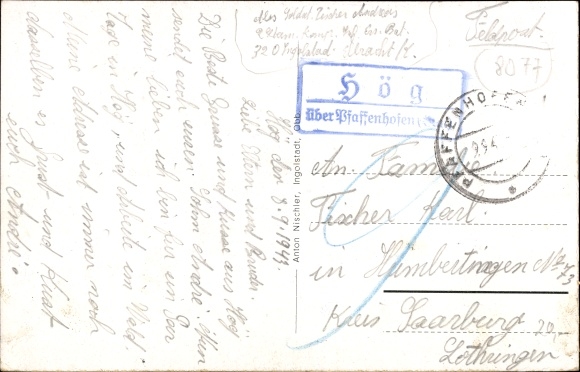 Feldpost.
8077
Abs. Soldat Fischer Andreas
Hög
über Pfaffenhofen
PFAFFENHOFEN
Hög den 8.9.1944.
Liebe Eltern und Bruder.
Die Beste Grüsse und Küsse aus Hög
sendet euch euer Sohn Andre. Mein
meine lieben ich bin für ein Par
Tage in Hög, und arbeite im Wald.
Meine Adresse ist immer noch
dasselbe. es Grüst und Küst
euch Andre.
Anton Nischler, Ingolstadt,
An Familie
Fischer Karl.
in Hümbertingen No 73
Kreis Saarburg
Lothringen
20,-